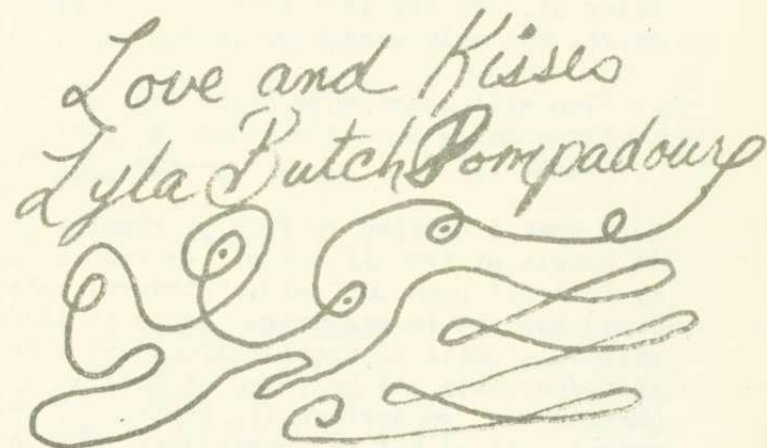 Love and Kisses
Lyla Butch Pompadour